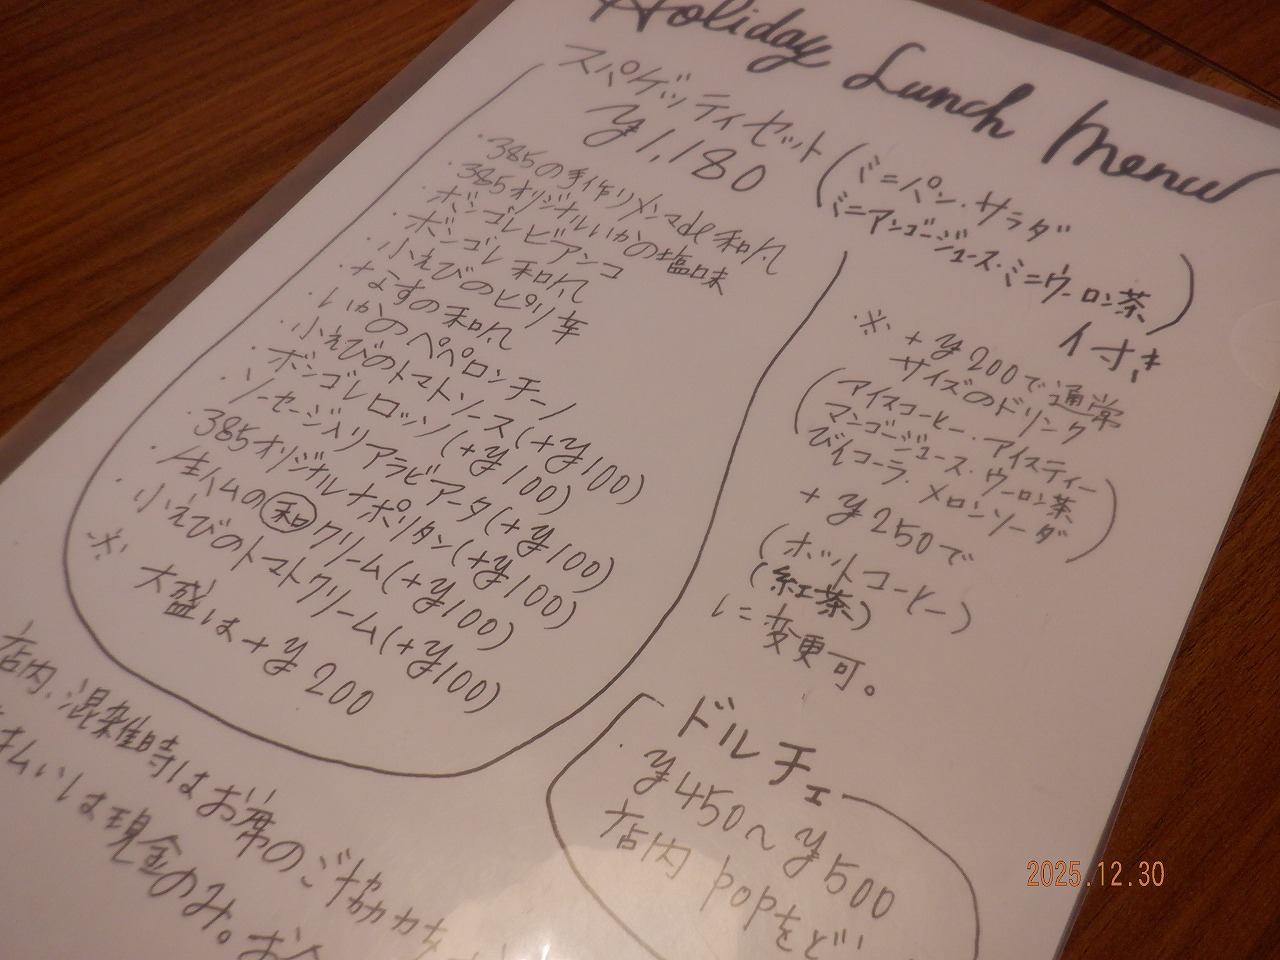 Holiday Lunch Menu
スパゲッティセット
¥1,180
(ミニパン・サラダ
ミニマンゴージュース・ミニウーロン茶)
付き
・385の手作りメンマde和風
・385オリジナルいかの塩味
・ボンゴレビアンコ
・ボンゴレ和風
・小えびのピリ辛
・なすの和風
・いかのペペロンチーノ
・小えびのトマトソース(+¥100)
・ボンゴレロッソ(+¥100)
・ソーセージ入りアラビアータ(+¥100)
・385オリジナルナポリタン(+¥100)
・生ハムの和クリーム(+¥100)
・小えびのトマトクリーム(+¥100)
※大盛は+¥200
※+¥200で通常
サイズのドリンク
(アイスコーヒー・アイスティー
マンゴージュース・ウーロン茶
びんコーラ・メロンソーダ)
+¥250で
(ホットコーヒー)
(紅茶)
に変更可。
ドルチェ
・¥450〜¥500
店内popを
店内、混雑時はお席のご協力を
払いは現金のみ。